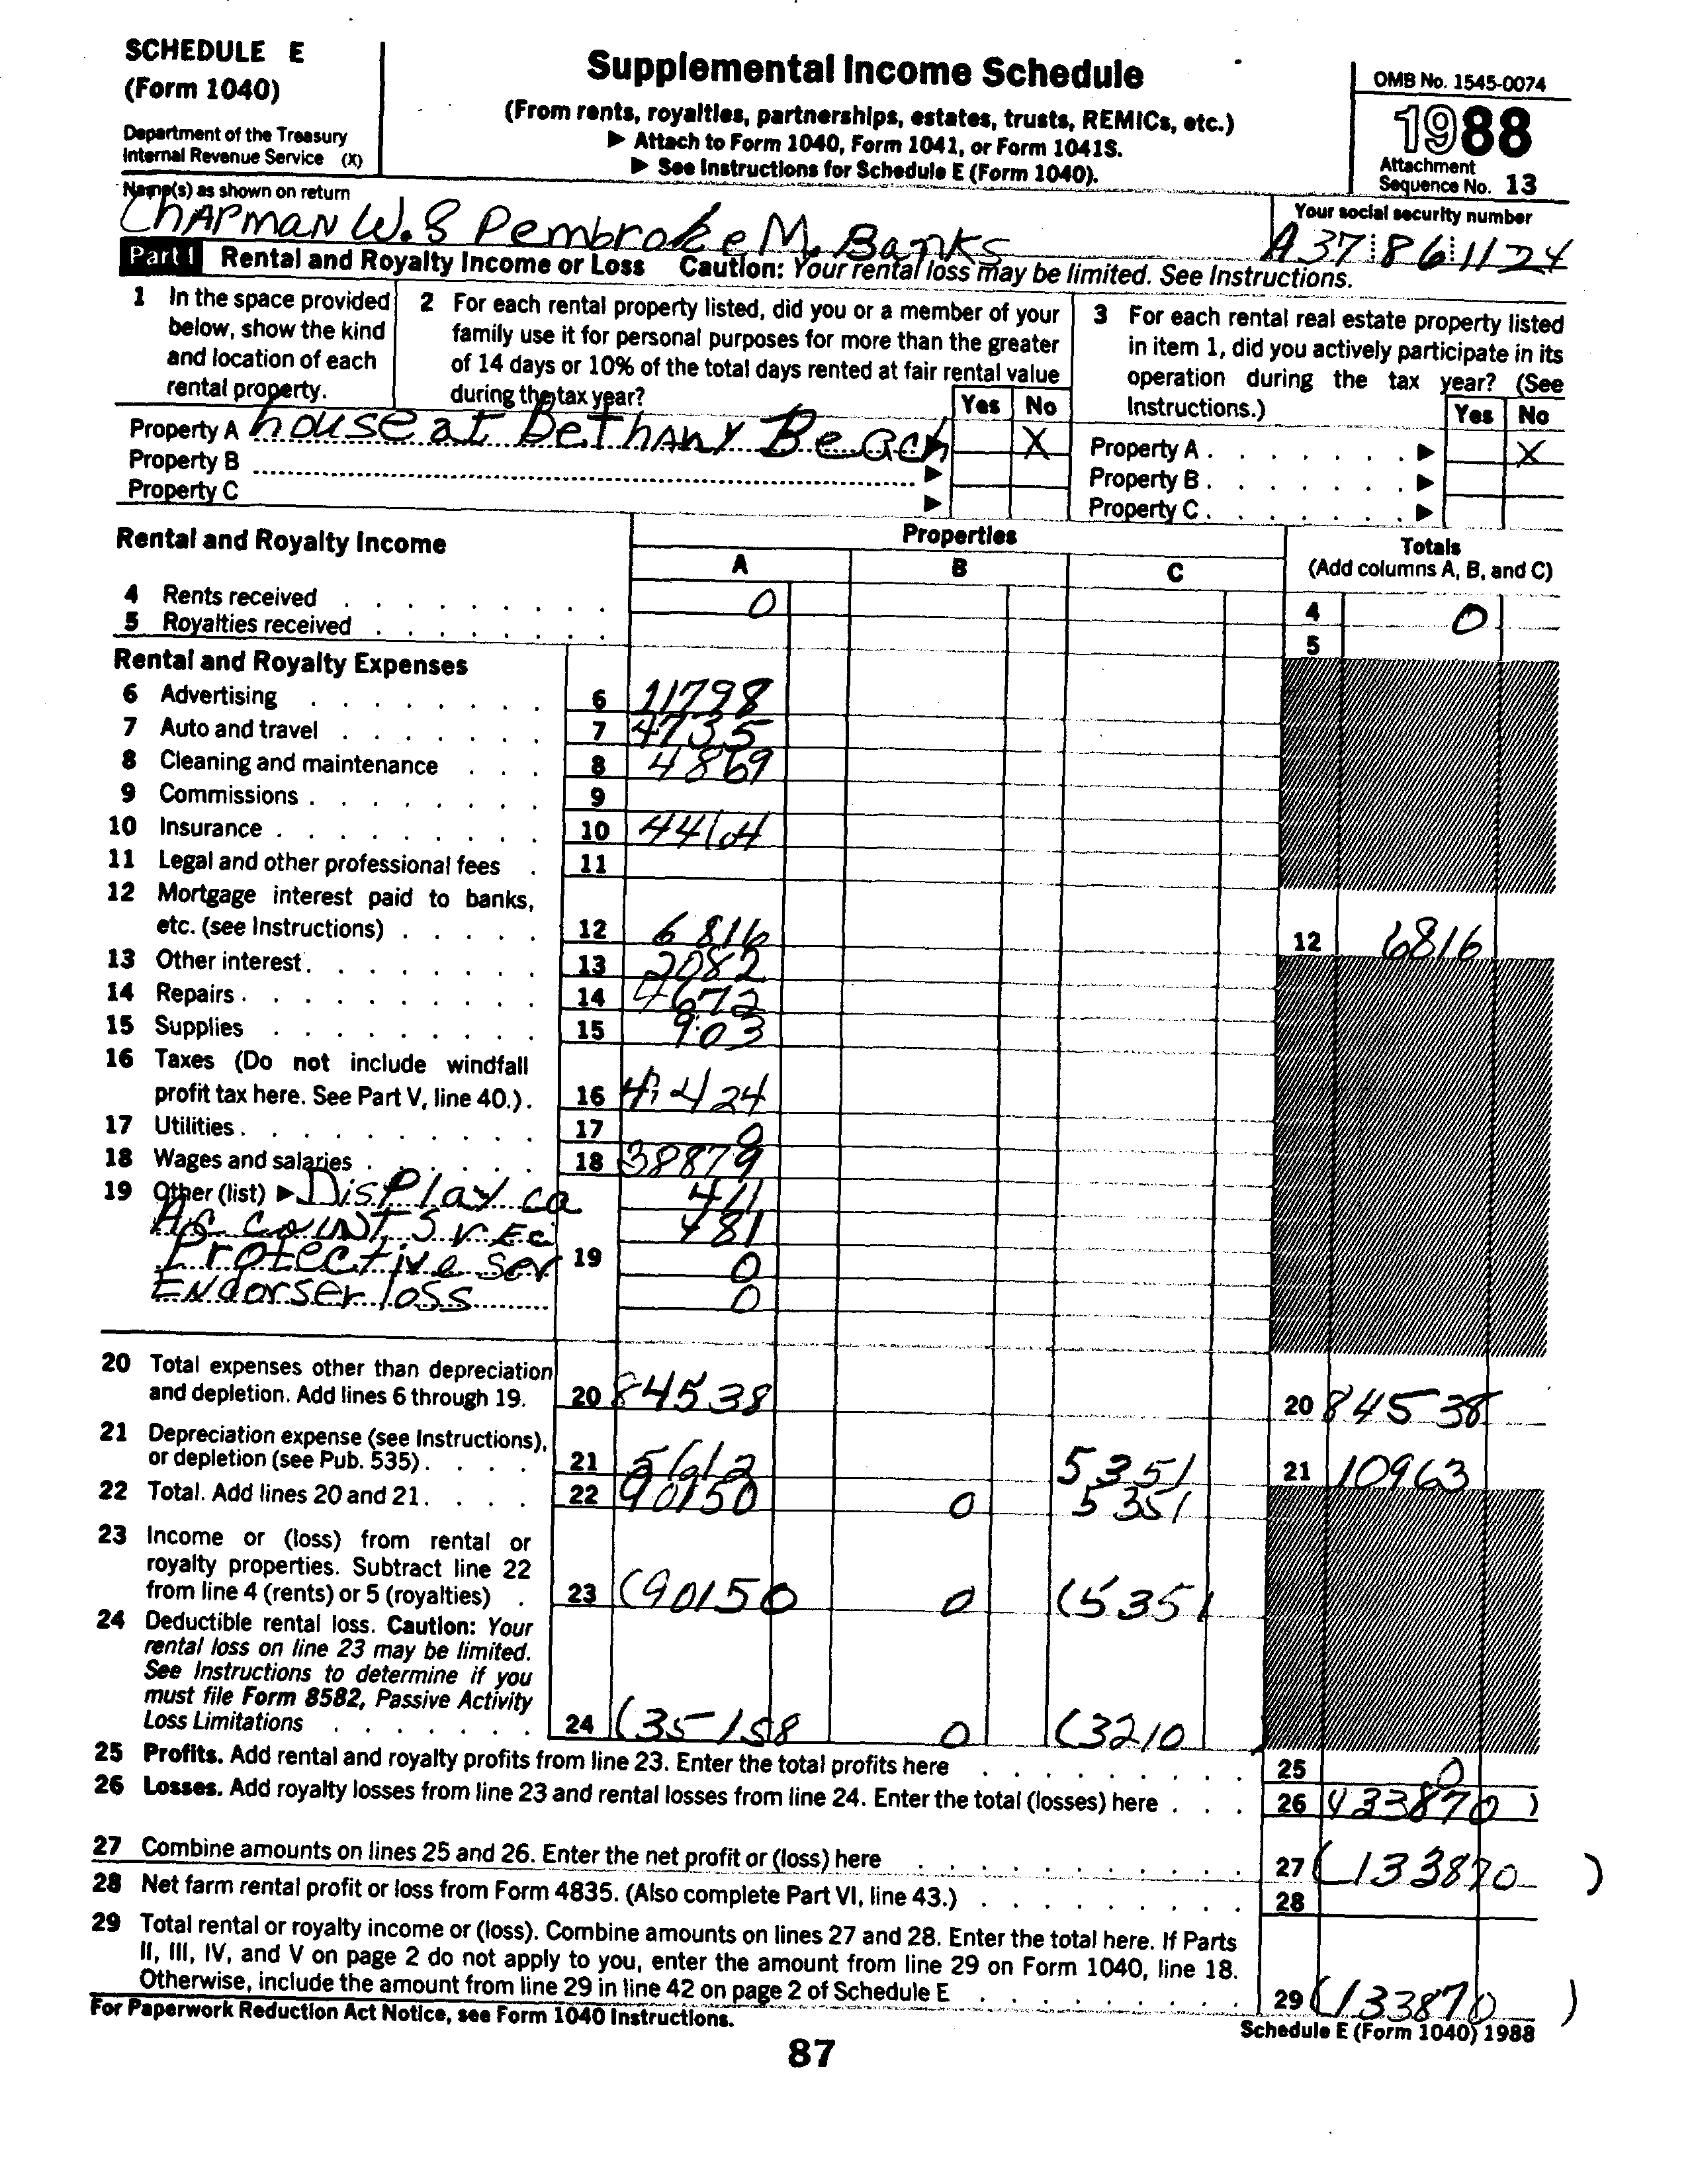 SCHEDULE E
(Form 1040)
Department of the Treasury
Internal Revenue Service (X)
Supplemental Income Schedule
(From rents, royalties, partnerships, estates, trusts, REMICs, etc.)
▶ Attach to Form 1040, Form 1041, or Form 1041S.
▶ See Instructions for Schedule E (Form 1040).
OMB No. 1545-0074
1988
Attachment
Sequence No. 13
Name(s) as shown on return
CHAPMAN W. & Pembroke M. Banks
Your social security number
A37 86 1124
Part I Rental and Royalty Income or Loss Caution: Your rental loss may be limited. See Instructions.
1 In the space provided
below, show the kind
and location of each
rental property.
2 For each rental property listed, did you or a member of your
family use it for personal purposes for more than the greater
of 14 days or 10% of the total days rented at fair rental value
during the tax year?
Yes No
3 For each rental real estate property listed
in item 1, did you actively participate in its
operation during the tax year? (See
Instructions.)
Yes No
Property A house at Bethany Beach ▶ X
Property B ▶
Property C ▶
Property A . . . . . . . ▶ X
Property B . . . . . . . ▶
Property C . . . . . . . ▶
Rental and Royalty Income
Properties
A B C
Totals
(Add columns A, B, and C)
4 Rents received 0 4 0
5 Royalties received 5
Rental and Royalty Expenses
6 Advertising 6 11798
7 Auto and travel 7 4735
8 Cleaning and maintenance 8 4869
9 Commissions 9
10 Insurance 10
11 Legal and other professional fees 11
12 Mortgage interest paid to banks,
etc. (see Instructions) 12 6816 12 6816
13 Other interest 13 2082
14 Repairs 14 4672
15 Supplies 15 903
16 Taxes (Do not include windfall
profit tax here. See Part V, line 40.) 16 4,424
17 Utilities 17 0
18 Wages and salaries 18 38879
19 Other (list) ▶ Display ca 411
Account S V Ec 481
Protective Ser 19 0
Endorser loss 0
20 Total expenses other than depreciation
and depletion. Add lines 6 through 19. 20 84538 20 84538
21 Depreciation expense (see Instructions),
or depletion (see Pub. 535) 21 5612 5351 21 10963
22 Total. Add lines 20 and 21 22 90150 0 5351
23 Income or (loss) from rental or
royalty properties. Subtract line 22
from line 4 (rents) or 5 (royalties) 23 (90150 0 (5351
24 Deductible rental loss. Caution: Your
rental loss on line 23 may be limited.
See Instructions to determine if you
must file Form 8582, Passive Activity
Loss Limitations 24 (35158 0 (3210 )
25 Profits. Add rental and royalty profits from line 23. Enter the total profits here 25 0
26 Losses. Add royalty losses from line 23 and rental losses from line 24. Enter the total (losses) here 26 (133870 )
27 Combine amounts on lines 25 and 26. Enter the net profit or (loss) here 27 (133870 )
28 Net farm rental profit or loss from Form 4835. (Also complete Part VI, line 43.) 28
29 Total rental or royalty income or (loss). Combine amounts on lines 27 and 28. Enter the total here. If Parts
II, III, IV, and V on page 2 do not apply to you, enter the amount from line 29 on Form 1040, line 18.
Otherwise, include the amount from line 29 in line 42 on page 2 of Schedule E 29 (133870 )
For Paperwork Reduction Act Notice, see Form 1040 Instructions.
Schedule E (Form 1040) 1988
87